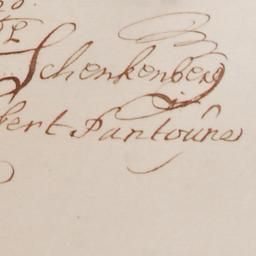 Schenkenberg
bert Pantoûns